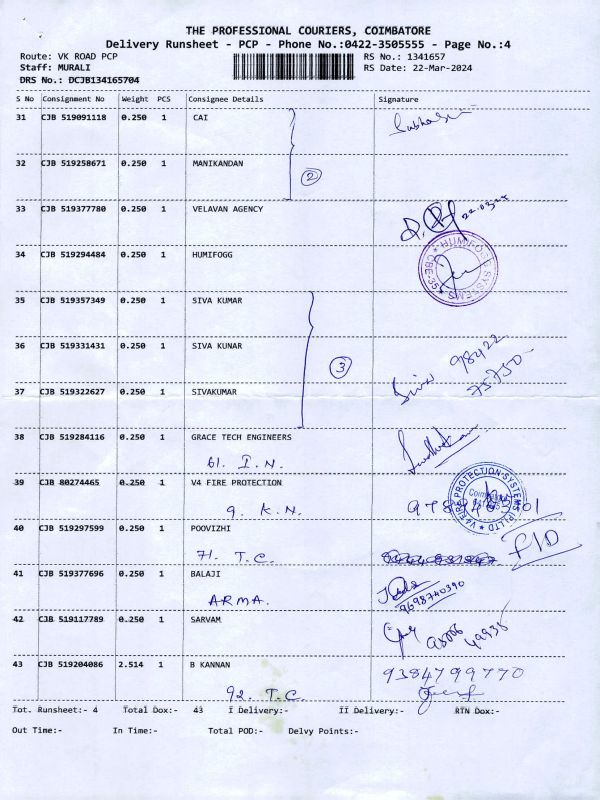 THE PROFESSIONAL COURIERS, COIMBATORE
Delivery Runsheet - PCP - Phone No.:0422-3505555 - Page No.:4
Route: VK ROAD PCP RS No.: 1341657
Staff: MURALI RS Date: 22-Mar-2024
DRS No.: DCJB134165704
S No Consignment No Weight PCS Consignee Details Signature
31 CJB 519091118 0.250 1 CAI
32 CJB 519258671 0.250 1 MANIKANDAN
2
33 CJB 519377780 0.250 1 VELAVAN AGENCY
34 CJB 519294484 0.250 1 HUMIFOGG
HUMIFOGG SYSTEMS CBE-35
35 CJB 519357349 0.250 1 SIVA KUMAR
36 CJB 519331431 0.250 1 SIVA KUNAR
3 98422
75750
37 CJB 519322627 0.250 1 SIVAKUMAR Siva
38 CJB 519284116 0.250 1 GRACE TECH ENGINEERS
61. I.N.
39 CJB 80274465 0.250 1 V4 FIRE PROTECTION
V4 FIRE PROTECTION SYSTEMS (P) LTD
9. K.N.
40 CJB 519297599 0.250 1 POOVIZHI
71. T.C.
41 CJB 519377696 0.250 1 BALAJI
ARMA. 9698740390
42 CJB 519117789 0.250 1 SARVAM
43 CJB 519204086 2.514 1 B KANNAN 9384799770
92. T.C.
Tot. Runsheet:- 4 Total Dox:- 43 I Delivery:- II Delivery:- RTN Dox:-
Out Time:- In Time:- Total POD:- Delvy Points:-